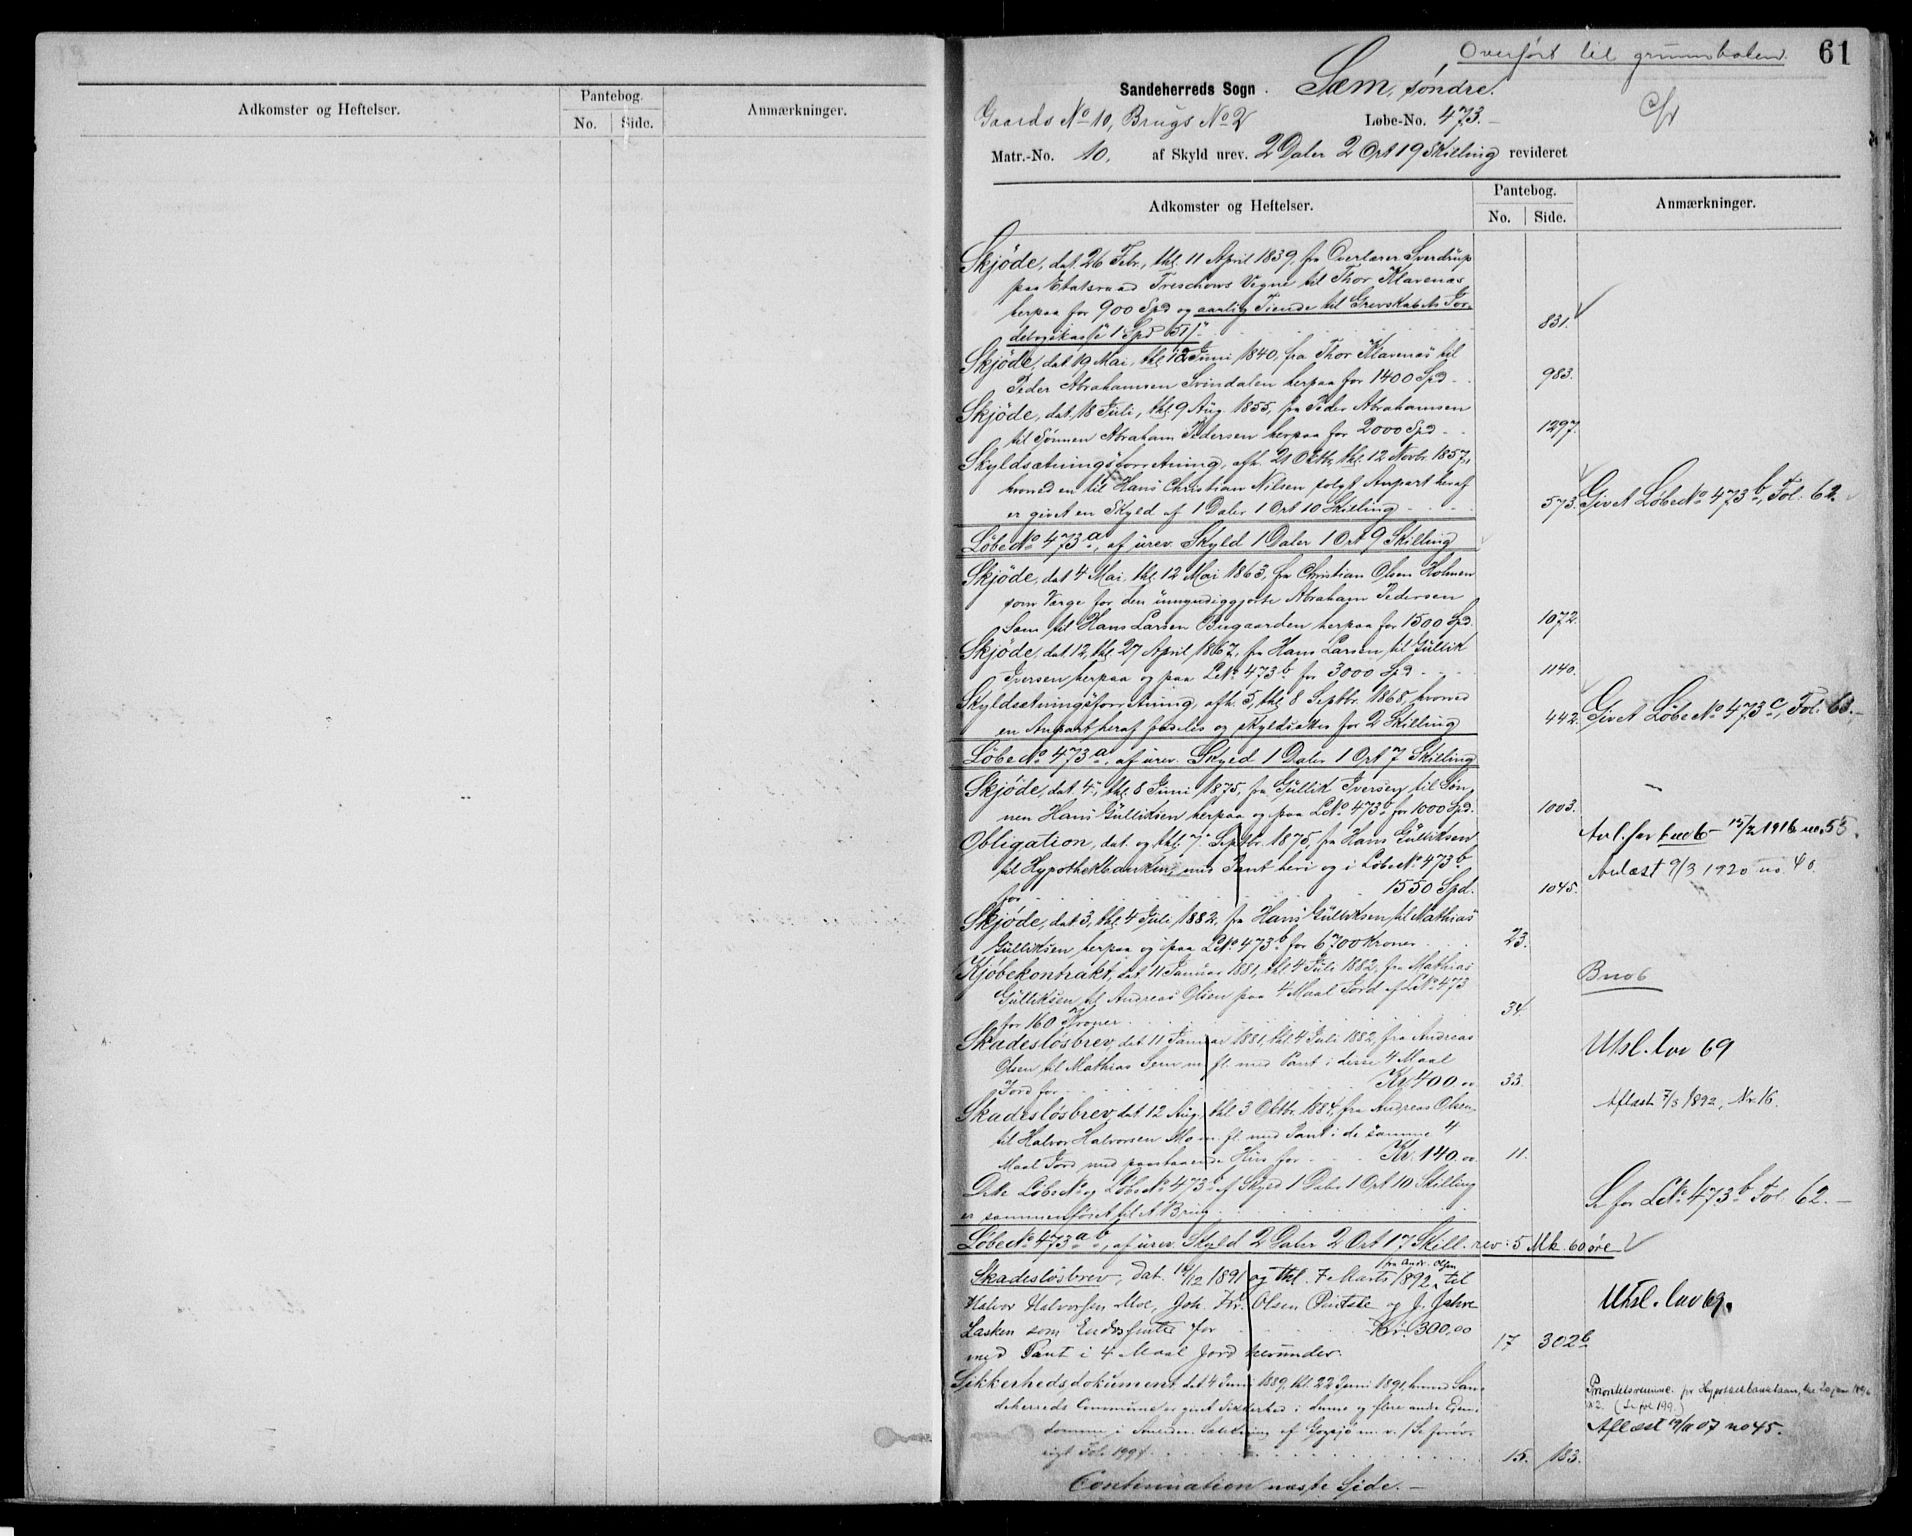 Adkomster og Heftelser.
Pantebog.
No. Side.
Anmærkninger.
Overført til grunnboken.
61
Sandeherreds Sogn. Sem, søndre.
Gaards No 10, Brugs No 2
Løbe-No. 473.
Matr.-No. 10. af Skyld urev. 2 Daler 2 Ort 19 Skilling revideret
Adkomster og Heftelser.
Pantebog.
No. Side.
Anmærkninger.
Skjøde, dat. 26 Febr., thl. 11 April 1839, fra Overlærer Sverdrup
paa Etatsraad Treschows Vegne til Thor Klavenæs
herpaa for 900 Spd og aarlig Tiende til Grevskabets Jor-
debogskasse 1 Spd 51 831.
Skjøde, dat 19 Mai, thl 12 Juni 1840, fra Thor Klavenæs til
Peder Abrahamsen Svindalen herpaa for 1400 Spd 983.
Skjøde, dat. 18 Juli, thl. 9 Aug. 1855, fra Peder Abrahamsen
til Sønnen Abraham Pedersen herpaa for 2000 Spd 1297.
Skyldsætningsforretning, afh. 21 Oktb., thl. 12 Novbr. 1857,
hvorved en til Hans Christian Nilsen solgt Anpart heraf
er givet en Skyld af 1 Daler 1 Ort 10 Skilling 573. Givet Løbe No 473b, Fol. 62.
Løbe No 473a, af urev. Skyld 1 Daler 1 Ort 9 Skilling
Skjøde, dat 4 Mai, thl. 12 Mai 1863, fra Christian Olsen Holmen
som Værge for den umyndiggjorte Abraham Pedersen
Sem til Hans Larsen Bugaarden herpaa for 1500 Spd. 1072.
Skjøde, dat. 12, thl. 27 April 1867, fra Hans Larsen til Gullik
Iversen herpaa og paa L.No 473b for 3000 Spd 1140.
Skyldsætningsforretning, afh. 5, thl 8 Septbr. 1868, hvorved
en Anpart heraf fradeles og skyldsættes for 2 Skilling 442. Givet Løbe No 473c, Fol. 63.
Løbe No 473a, af urev. Skyld 1 Daler 1 Ort 7 Skilling
Skjøde, dat. 4, thl. 8 Juni 1875, fra Gullik Iversen til Søn-
nen Hans Gulliksen herpaa og paa L.No 473b for 1000 Spd. 1003.
Obligation, dat. og thl. 7 Septbr. 1875, fra Hans Gulliksen
til Hypothekbanken, mod Pant heri og i Løbe No 473b
for 1550 Spd. 1045.
Avl. for bno 6 15/2 1916 no. 55.
Avlæst 9/3 1920 no. 40
Skjøde, dat. 3, thl. 4 Juli 1882, fra Hans Gulliksen til Mathias
Gulliksen herpaa og paa L.No 473b for 6700 Kroner 23.
Kjøbekontrakt, dat. 11 Januar 1881, thl. 4 Juli 1882, fra Mathias
Gulliksen til Andreas Olsen paa 4 Maal Jord af L.No 473
for 160 Kroner 34.
Bno 6
Skadesløsbrev, dat. 11 Januar 1881, thl. 4 Juli 1882, fra Andreas
Olsen til Mathias Sem m. fl. med Pant i disse 4 Maal
Jord for Kr. 400.00 33.
Utsl. lov 69
Skadesløsbrev, dat. 12 Aug., thl. 3 Oktbr. 1884, fra Andreas Olsen
til Halvor Halvorsen Mo m. fl. med Pant i de samme 4
Maal Jord med paastaaende Hus for Kr. 140.00 11.
Aflæst 7/3 1892, Nr. 16.
Dette Løbe No og Løbe No 473b af Skyld 1 Daler 1 Ort 10 Skilling
er sammenføiet til et Brug.
Se for L.No 473b Fol 62.
Løbe No 473ab, af urev. Skyld 2 Daler 2 Ort 17 Skill. rev: 5 Mk. 60 øre
fra Andr. Olsen
Skadesløsbrev, dat. 16/12 1891 og thl. 7 Marts 1892, til
Halvor Halvorsen Moe, Joh. Fr. Olsen og J. Jahre
Lasken som for Kr. 300,00
med Pant i 4 Maal Jord herunder. 17 302b
Utsl. lov 69.
Sikkerhedsdokument, dat 4 Juni 1889, thl. 22 Juni 1891, hvorved San-
deherreds Commune giver Sikkerhed i denne og flere andre Eien-
domme i af Gogsjø m. v. (Se forøv-
rigt Fol. 199) 15. 183.
Prioritetsvigelse for Hypothekbanken, thl. 20 jan 1896
No 2. (Se fol 199.)
Aflæst 19/11 07 no 45.
Continuation næste Side.